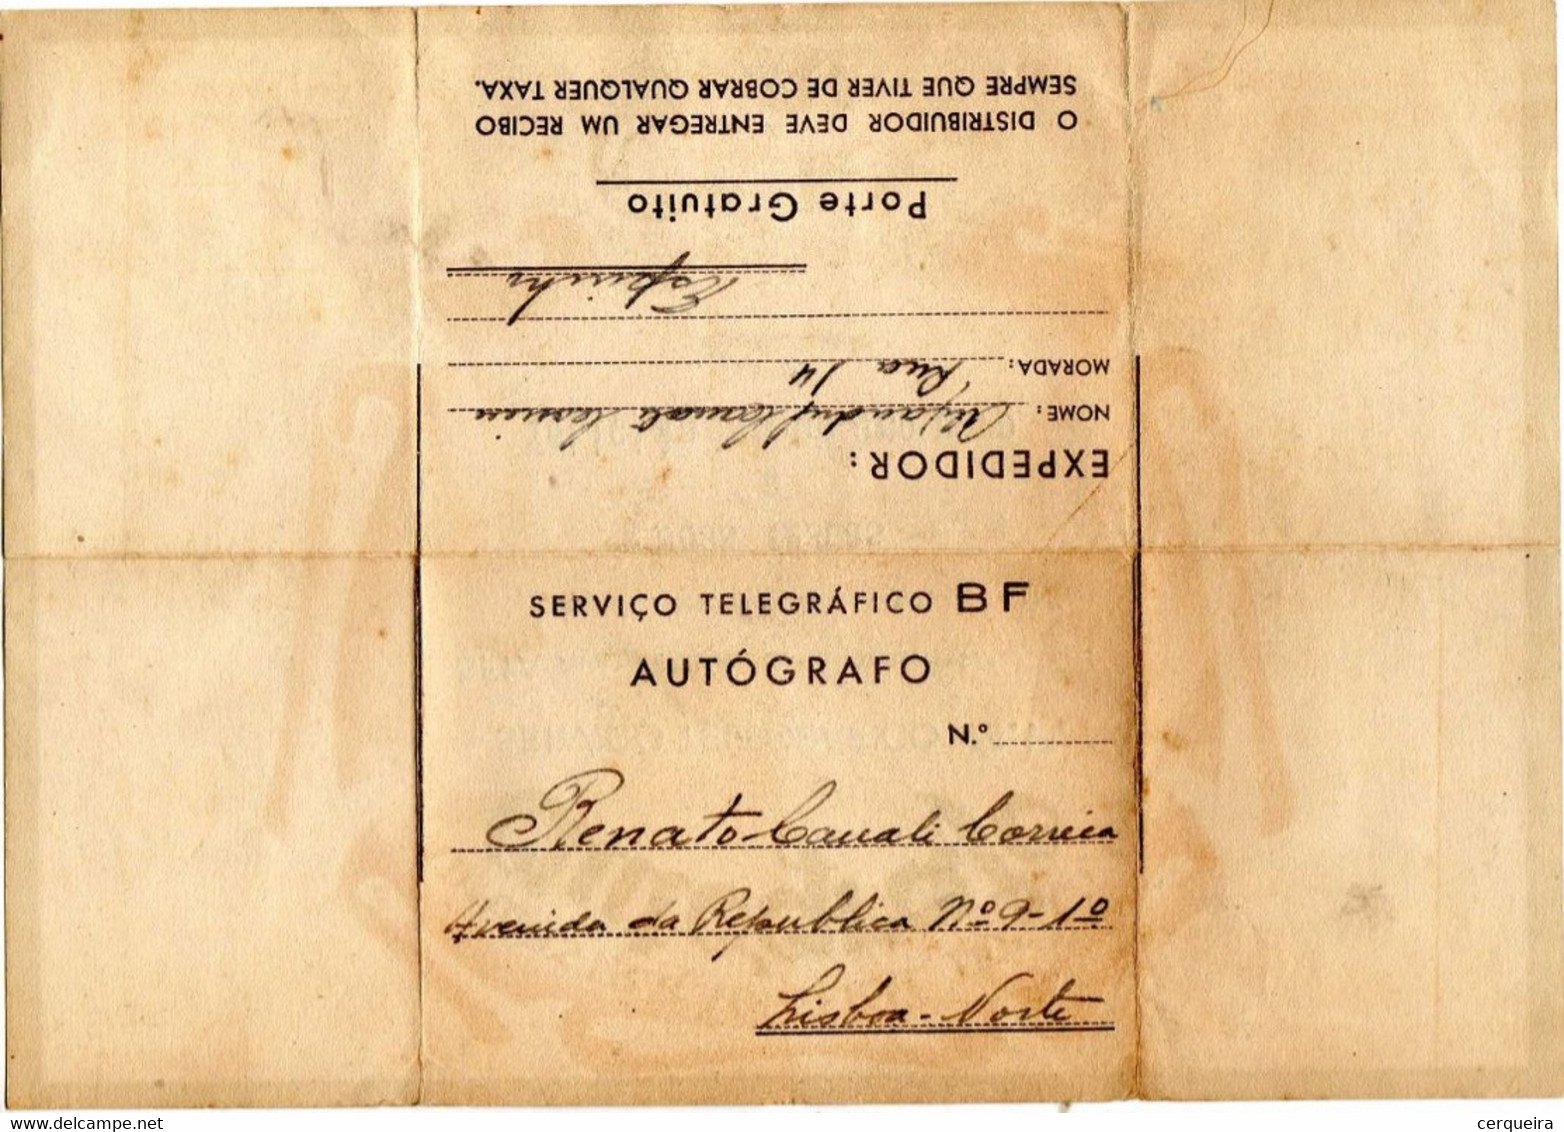 SERVIÇO TELEGRÁFICO BF
AUTÓGRAFO
N.º
Renato Cavali Correia
Avenida da Republica Nº 9-1º
Lisboa-Norte
EXPEDIDOR:
NOME: Cavali Correia
MORADA: Rua 14
Espinho
Porte Gratuito
O DISTRIBUIDOR DEVE ENTREGAR UM RECIBO
SEMPRE QUE TIVER DE COBRAR QUALQUER TAXA.
www.delcampe.net
cerqueira